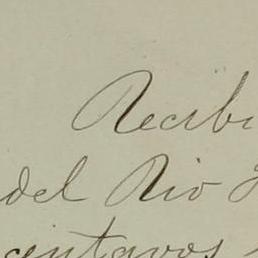 Recibi
del Rio
centavos